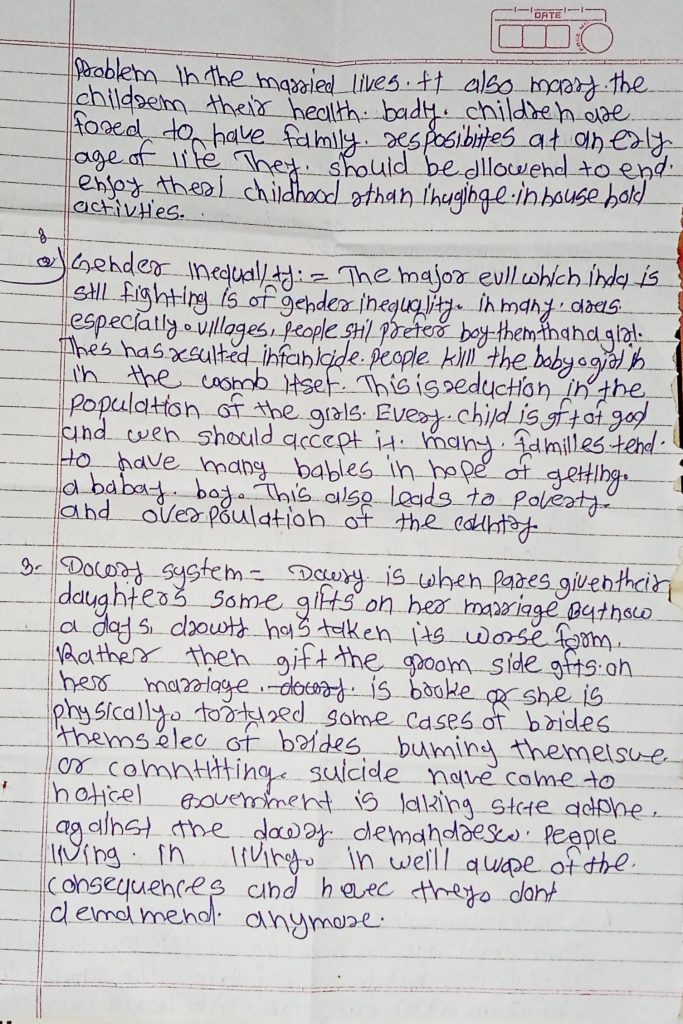 DATE
problem in the married lives. It also marry the
childrem their health. bady. children are
fored to have family. resposibites at an erly.
age of life They. should be allowend to end.
enjoy theal childhood rthan inuginge in house hold
activties.
2) Gender Inequality := The major evll which inda is
still fighting is of gender inequality. in many. areas.
especially. villages, people stil preter boy them than a girl.
Thes has resulted infanicide. people kill the baby a girl in
in the coomb itset. This is reduction in the
population of the girls. Every. child is gft of god
and wen should accept it. many. familles tend.
to have many bables in hope of getting.
a babay. boy. This also leads to poverty.
and over poulation of the country
3- Dowry system = Dowry is when pares given their
daughters some gifts on her marriage But now
a days, drowty has taken its worse form.
Rather then gift the groom side gfts. on
hers marriage. dowry. is broke or she is
physically. tortured some cases of brides
themselec of brides buming themelsue.
or comntitting. suicide have come to
noticel Government is laking stcte actone.
against the dowry demandresco. people
living. in livingo in weill aware of the.
consequences and havec theyo dont
demamend. anymore.